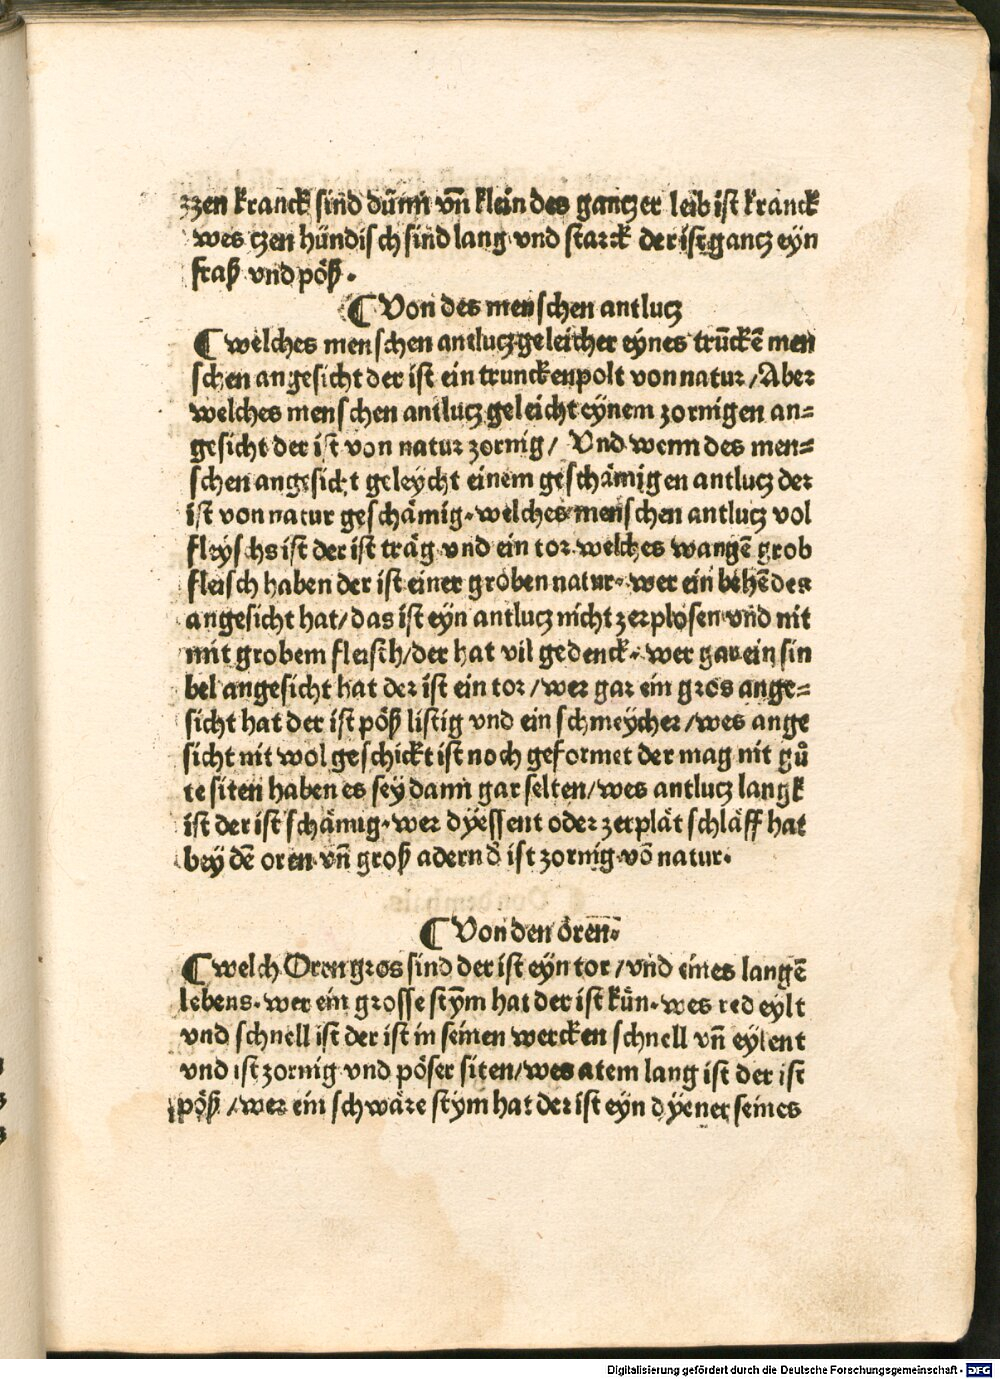 zzen kranck sind dünn vñ klein des gantzer leib ist kranck
wes tzen hündisch sind lang vnd starck der ist gantz eÿn
fraß vnd pöß.
¶ Von des menschen antlutz
¶ welches menschen antlutz geleicher eynes trūckē men
schen angesicht der ist ein trunckenpolt von natur / Aber
welches menschen antlutz geleicht eÿnem zornigen an=
gesicht der ist von natur zornig / Vnd wenn des men=
schen angesicht geleÿcht einem geschämigen antlutz der
ist von natur geschämig. welches menschen antlutz vol
fleÿschs ist der ist träg vnd ein tor. welches wangē grob
fleisch haben der ist einer groben natur. wer ein behēdes
angesicht hat / das ist eÿn antlutz nicht zerplosen vnd nit
mit grobem fleisch / der hat vil gedenck. wer gar ein sin
bel angesicht hat der ist ein tor / wer gar ein gros ange=
sicht hat der ist pöß listig vnd ein schmeÿcher / wes ange
sicht nit wol geschickt ist noch geformet der mag nit gů
te siten haben es seÿ dann gar selten / wes antlutz langk
ist der ist schämig. wer dÿessent oder zerplät schläff hat
beÿ dē oren vñ groß adern d̄ ist zornig vō natur.
¶ Von den ören.
¶ welch Oren gros sind der ist eÿn tor / vnd eines langē
lebens. wer ein grosse stÿm hat der ist kün. wes red eylt
vnd schnell ist der ist in seinen wercken schnell vñ eylent
vnd ist zornig vnd pöser siten / wes atem lang ist der ist
pöß / wer ein schwäre stÿm hat der ist eÿn dÿener seines
Digitalisierung gefördert durch die Deutsche Forschungsgemeinschaft - DFG